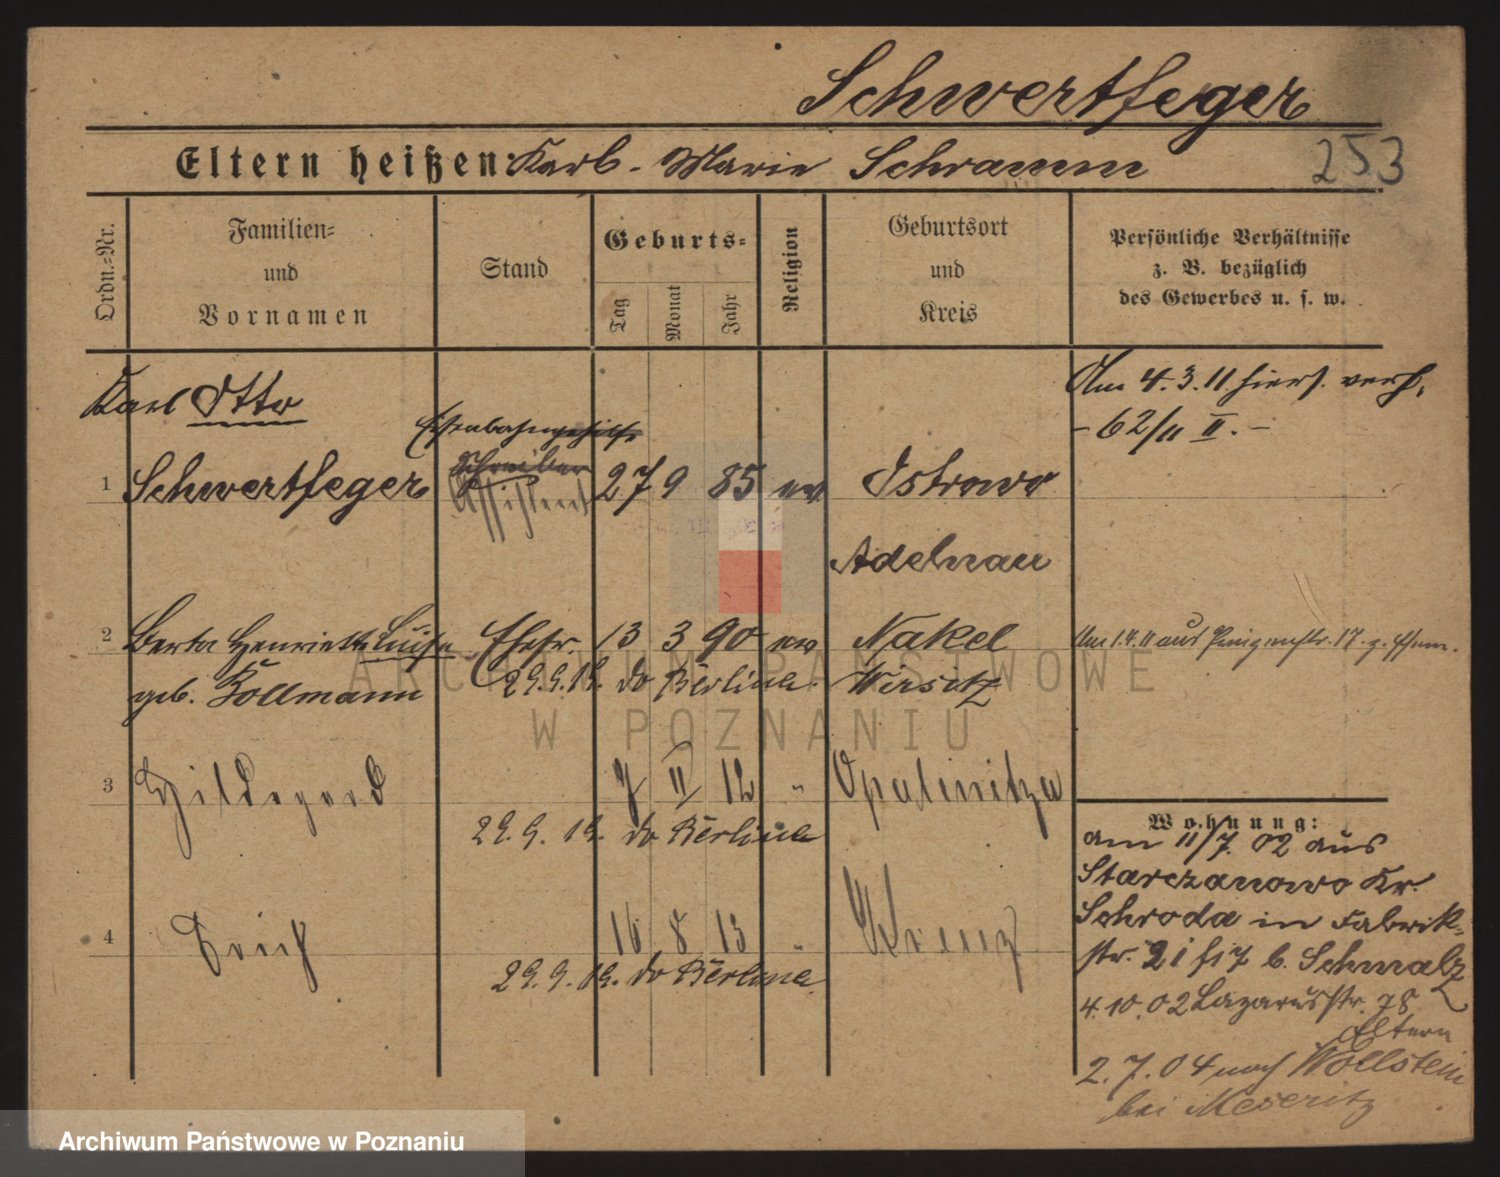 Schwertfeger
Eltern heißen: Karl - Marie Schramm
253
Ordn.=Nr.
Familien=
und
Vornamen
Stand
Geburts=
Tag
Monat
Jahr
Religion
Geburtsort
und
Kreis
Persönliche Verhältnisse
z. B. bezüglich
des Gewerbes u. s. w.
Karl Otto
Eisenbahngehilfe
Am 4.3.11. hiers. verh.
- 62/11 II. -
1 Schwertfeger
Schreiber
Assistent
27 9 85 ev
Ostrowo
Adelnau
2 Berta Henriette Luise
geb. Kollmann
Ehefr. 13 3 90 ev
29.9.19. do Berlina.
Nakel
Wirsitz
Am 1.4.11 aus 17.
3 Hildegard
7 II 12 "
Opalenitza
29.9.19. do Berlina
4 Erich
16 8 13 "
Kreuz
29.9.19. do Berlina.
Wohnung:
am 11/7. 02 aus
Starczanowo Kr.
Schroda in Fabrik-
str. 21 b. Schmalz
4.10.02 Lazarusstr. 78
Eltern
2.7.04 nach Wollstein
bei Meseritz
ARCHIWUM PAŃSTWOWE
W POZNANIU
Archiwum Państwowe w Poznaniu